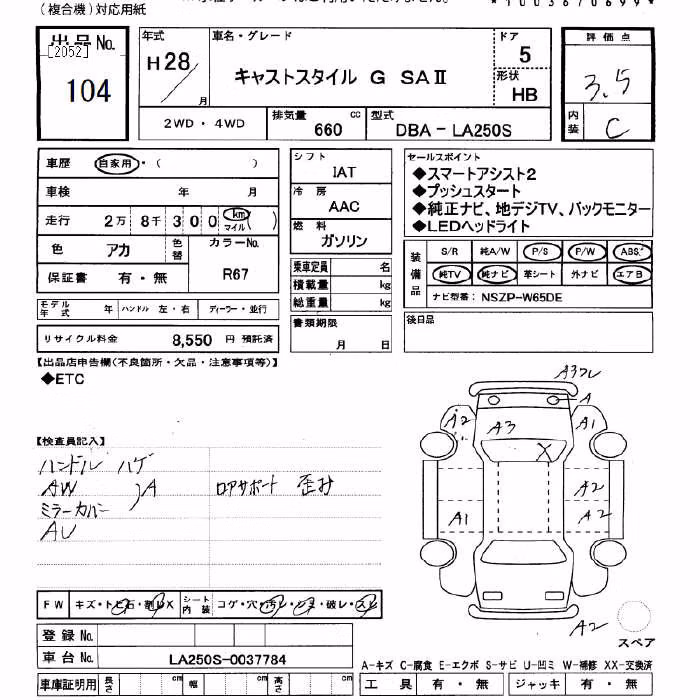 (複合機)対応用紙
出品No.
[2052]
104
年式
H28
月
車名・グレード
キャストスタイル G SAⅡ
ドア
5
形状
HB
評価点
3.5
内装
C
2WD・4WD
排気量
660
cc
型式
DBA－LA250S
車歴
自家用・( )
車検
年
月
走行
2万 8千300
km
マイル
( )
色
アカ
色替
カラーNo.
R67
保証書
有・無
モデル年式
年
ハンドル
左・右
ディーラー・並行
リサイクル料金
8,550
円 預託済
シフト
IAT
冷房
AAC
燃料
ガソリン
乗車定員
名
積載量
kg
総重量
kg
書類期限
月
日
セールスポイント
◆スマートアシスト2
◆プッシュスタート
◆純正ナビ、地デジTV、バックモニター
◆LEDヘッドライト
装備品
S/R
純A/W
P/S
P/W
ABS
純TV
純ナビ
革シート
外ナビ
エアB
ナビ型番:
NSZP-W65DE
後日品
【出品店申告欄(不良箇所・欠品・注意事項等)】
◆ETC
【検査員記入】
ハンドル ハゲ
AW
)A
ロアサポート 歪み
ミラーカバー
AU
A2
A3
A
A1
X
A2
A2
A1
A2
スペア
FW
キズ・トビ石・割レX
シート内装
コゲ・穴・汚レ・シミ・破レ・スレ
登録No.
車台No.
LA250S-0037784
車庫証明用
長さ
cm
幅
cm
高さ
cm
A-キズ C-腐食 E-エクボ S-サビ U-凹ミ W-補修 XX-交換済
工具
有・無
ジャッキ
有・無